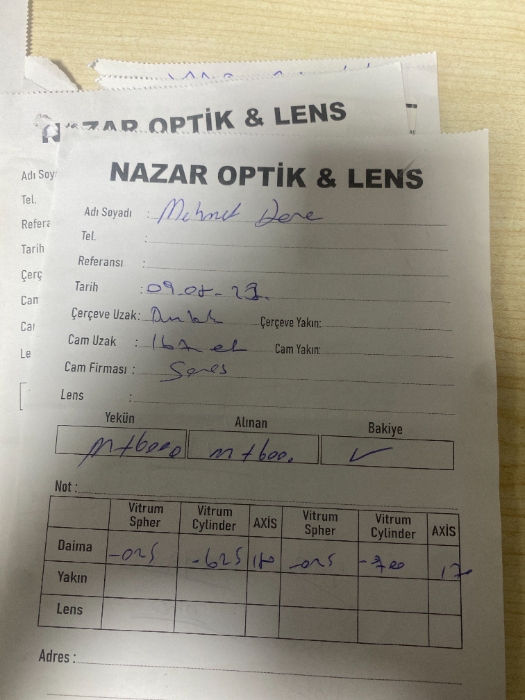 NAZAR OPTİK & LENS
Adı Soy
Tel.
Refera
Tarih
Çerç
Cam
Ca
Le
NAZAR OPTİK & LENS
Adı Soyadı : Mehmet Dere
Tel. :
Referansı :
Tarih : 09.08-23.
Çerçeve Uzak: Çerçeve Yakın:
Cam Uzak : Cam Yakın:
Cam Firması : Seres
Lens :
Yekün Alınan Bakiye
✓
Not :
Vitrum Spher Vitrum Cylinder AXİS Vitrum Spher Vitrum Cylinder AXİS
Daima -025 -625 180 -025 -700 17
Yakın
Lens
Adres :